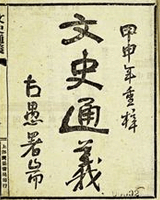 甲申年重梓
文史通義
古愚署耑